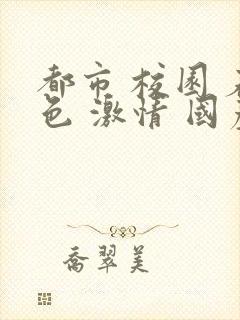 都市 校园 
色 激情 國
喬翠美